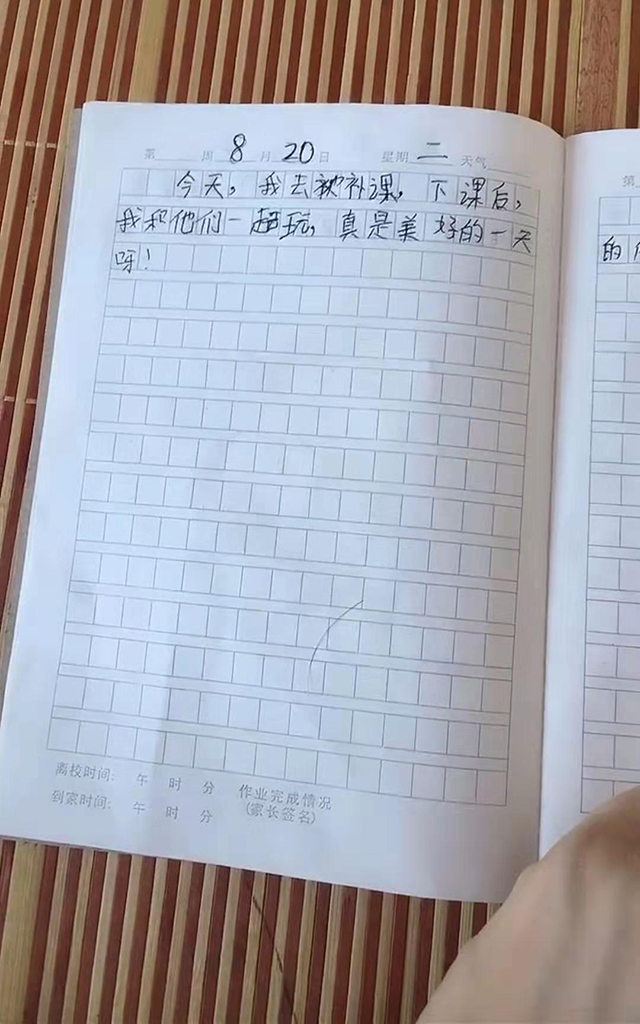 第 周 8 月 20 日 星期 二 天气
今天,我去被补课,下课后,
我和他们一起玩,真是美好的一天
呀!
离校时间: 午 时 分 作业完成情况
到家时间: 午 时 分 (家长签名)
第
的